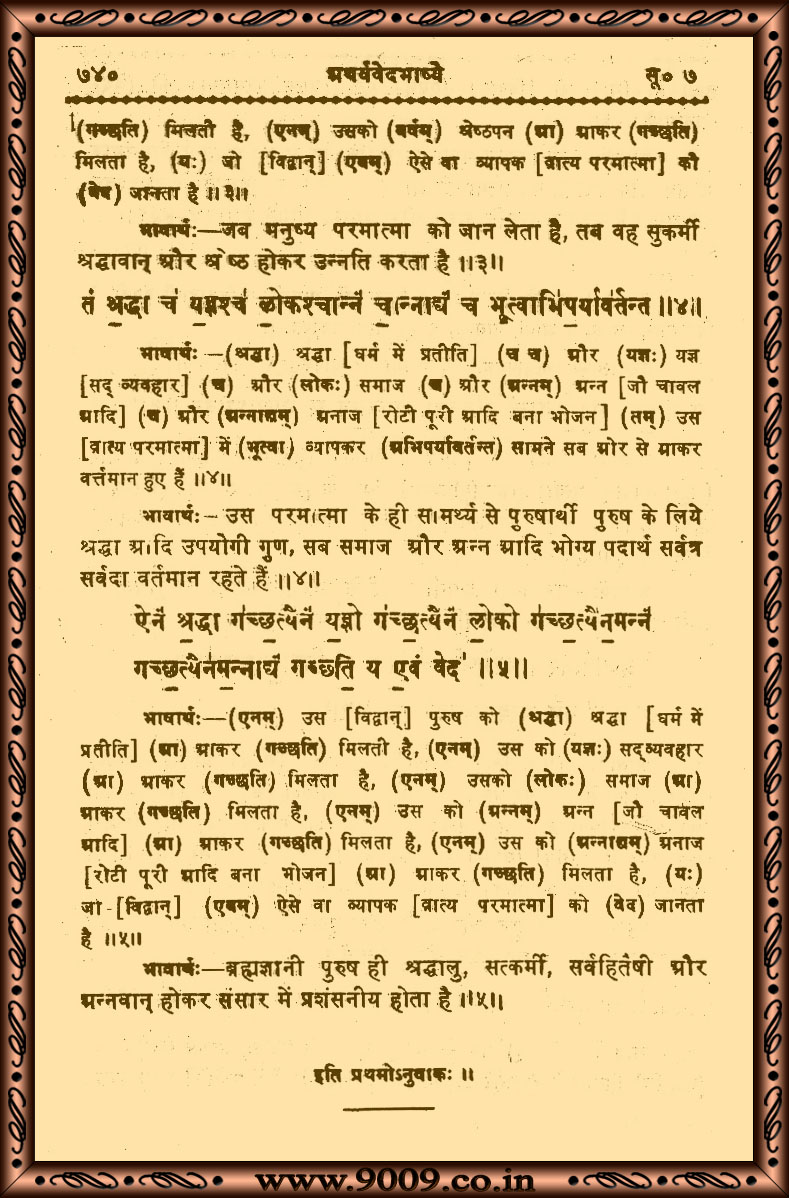 ७४० अथर्ववेदभाष्ये सू० ७
(गच्छति) मिलती है, (एनम्) उसको (वर्षम्) श्रेष्ठपन (आ) आकर (गच्छति)
मिलता है, (यः) जो [विद्वान्] (एवम्) ऐसे वा व्यापक [व्रात्य परमात्मा] को
(वेद) जानता है ॥३॥
भावार्थः—जब मनुष्य परमात्मा को जान लेता है, तब वह सुकर्मी
श्रद्धावान् और श्रेष्ठ होकर उन्नति करता है ॥३॥
तं श्र॒द्धा च॑ य॒ज्ञश्च॑ लो॒कश्चान्नं॑ चा॒न्नाद्यं॑ च भू॒त्वाभि॑प॒र्याव॑र्तन्त ॥४॥
भावार्थः—(श्रद्धा) श्रद्धा [धर्म में प्रतीति] (च च) और (यज्ञः) यज्ञ
[सद् व्यवहार] (च) और (लोकः) समाज (च) और (अन्नम्) अन्न [जौ चावल
आदि] (च) और (अन्नाद्यम्) अनाज [रोटी पूरी आदि बना भोजन] (तम्) उस
[व्रात्य परमात्मा] में (भूत्वा) व्यापकर (अभिपर्यावर्तन्त) सामने सब ओर से आकर
वर्त्तमान हुए हैं ॥४॥
भावार्थः—उस परमात्मा के ही सामर्थ्य से पुरुषार्थी पुरुष के लिये
श्रद्धा आदि उपयोगी गुण, सब समाज और अन्न आदि भोग्य पदार्थ सर्वत्र
सर्वदा वर्तमान रहते हैं ॥४॥
ऐनं॑ श्र॒द्धा ग॑च्छ॒त्यैनं॑ य॒ज्ञो ग॑च्छ॒त्यैनं॑ लो॒को ग॑च्छ॒त्यैन॒मन्नं॑
गच्छ॒त्यैन॑म॒न्नाद्यं॑ गच्छ॒ति॒ य ए॒वं वेद॑ ॥५॥
भावार्थः—(एनम्) उस [विद्वान्] पुरुष को (श्रद्धा) श्रद्धा [धर्म में
प्रतीति] (आ) आकर (गच्छति) मिलती है, (एनम्) उस को (यज्ञः) सद्व्यवहार
(आ) आकर (गच्छति) मिलता है, (एनम्) उसको (लोकः) समाज (आ)
आकर (गच्छति) मिलता है, (एनम्) उस को (अन्नम्) अन्न [जौ चावल
आदि] (आ) आकर (गच्छति) मिलता है, (एनम्) उस को (अन्नाद्यम्) अनाज
[रोटी पूरी आदि बना भोजन] (आ) आकर (गच्छति) मिलता है, (यः)
जो [विद्वान्] (एवम्) ऐसे वा व्यापक [व्रात्य परमात्मा] को (वेद) जानता
है ॥५॥
भावार्थः—ब्रह्मज्ञानी पुरुष ही श्रद्धालु, सत्कर्मी, सर्वहितैषी और
अन्नवान् होकर संसार में प्रशंसनीय होता है ॥५॥
इति प्रथमोऽनुवाकः ॥
www.9009.co.in